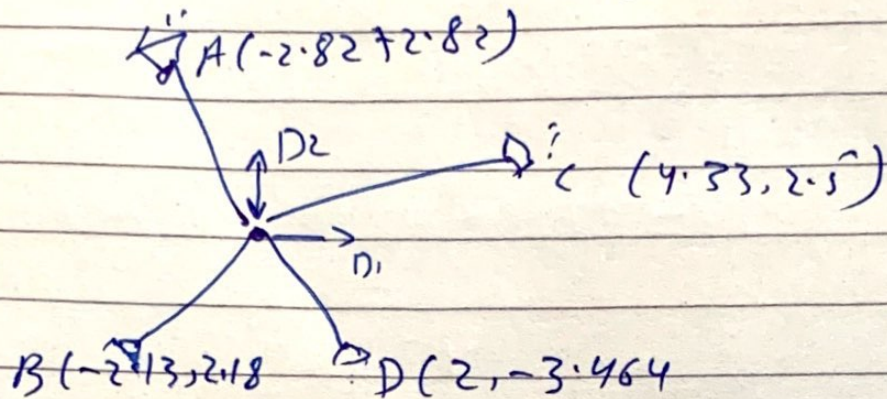 A(-2.82+2.82)
D2
C (4.33, 2.5)
D1
B(-2.13,2.18
D(2,-3.464